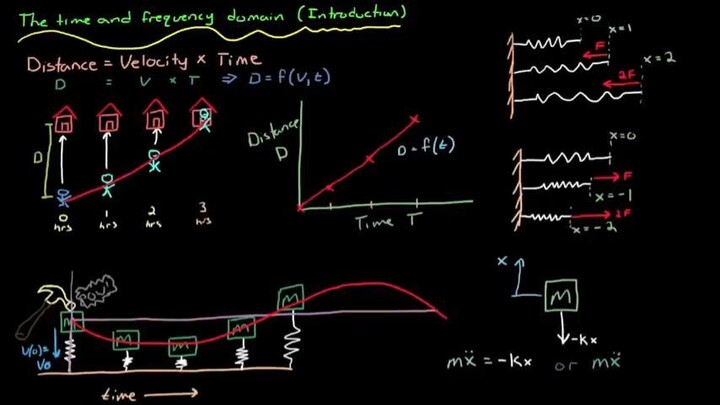 The time and frequency domain (Introduction)
Distance = Velocity × Time
D = V × T ⇒ D = f(v,t)
D
0 hrs
1 hrs
2 hrs
3 hrs
Distance
D
D = f(t)
Time T
x=0
x=1
F
x=2
2F
x=0
F
x=-1
2F
x=-2
POW!
M
M
M
M
M
V(0)=
V0
time
x
M
-kx
mẍ = -kx or mẍ